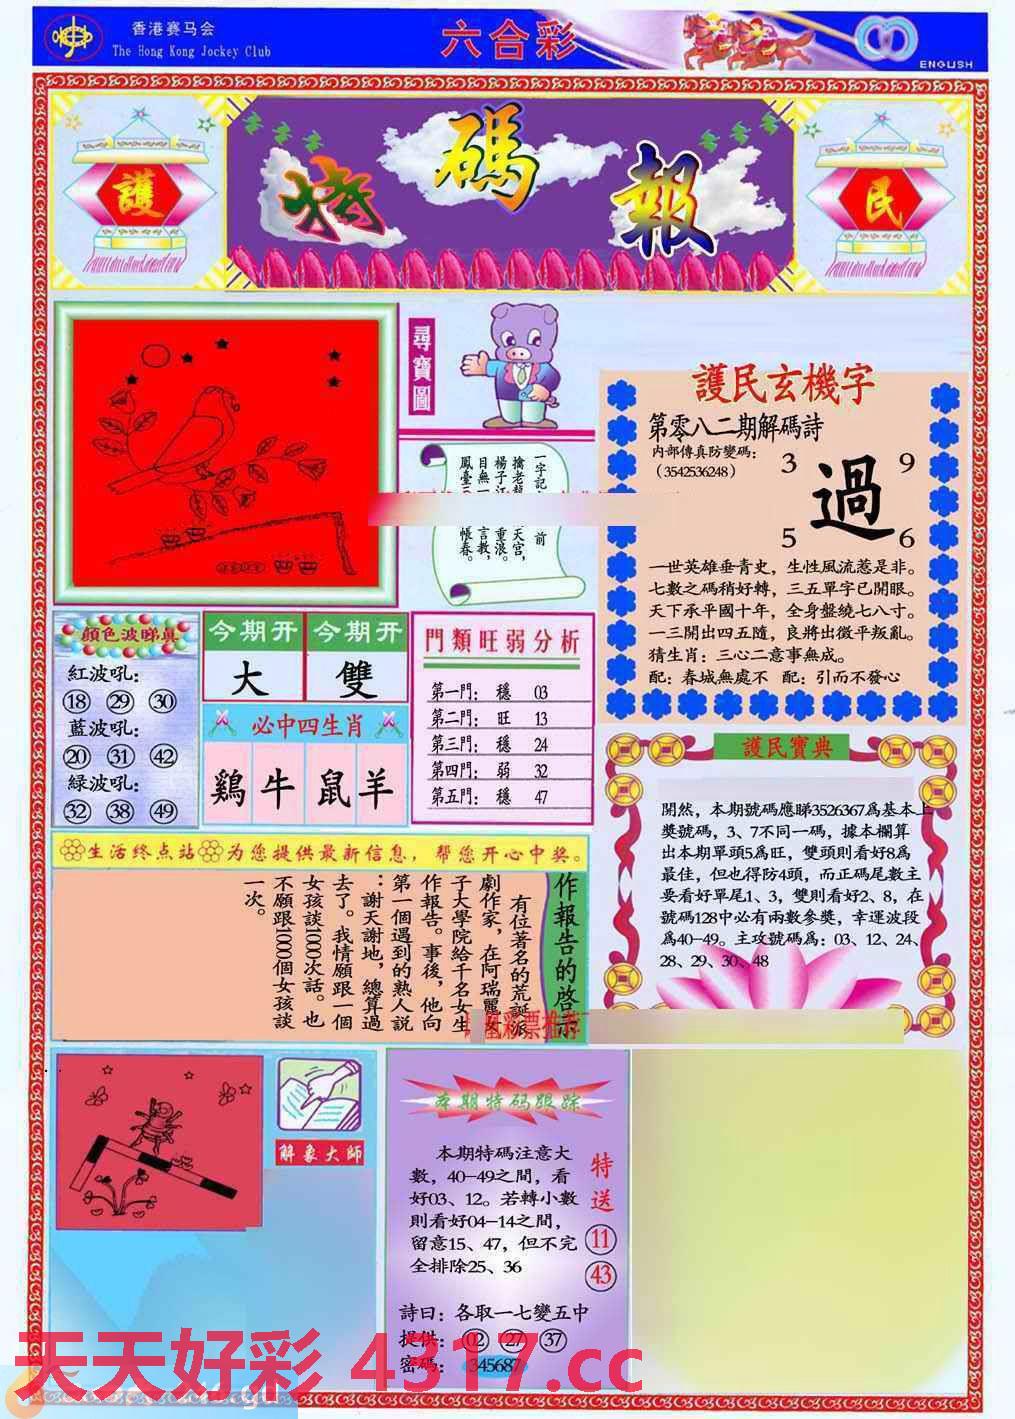 香港赛马会
The Hong Kong Jockey Club
六合彩
ENGLISH
護
特碼報
民
尋寶圖
一字記
前
擒老龍
天宮，
楊子江
重浪。
目無一
言教，
鳳臺
帳春。
護民玄機字
第零八二期解碼詩
內部傳真防變碼：
（3542536248）
3
9
過
5
6
一世英雄垂青史，生性風流惹是非。
七數之碼稍好轉，三五單字已開眼。
天下承平國十年，全身盤繞七八寸。
一三開出四五隨，良將出微平叛亂。
猜生肖：三心二意事無成。
配：春城無處不 配：引而不發心
顏色波睇真
紅波吼：
18 29 30
藍波吼：
20 31 42
緑波吼：
32 38 49
今期开 今期开
大 雙
必中四生肖
鷄 牛 鼠 羊
門類旺弱分析
第一門： 穩 03
第二門： 旺 13
第三門： 穩 24
第四門： 弱 32
第五門： 穩 47
護民寶典
開然，本期號碼應睇3526367爲基本上
獎號碼，3、7不同一碼，據本欄算
出本期單頭5爲旺，雙頭則看好8爲
最佳，但也得防4頭，而正碼尾數主
要看好單尾1、3，雙則看好2、8，在
號碼128中必有兩數參獎，幸運波段
爲40-49。主攻號碼爲：03、12、24、
28、29、30、48
生活终点站 为您提供最新信息，帮您开心中奖。
作報告的啓示
有位著名的荒誕派
劇作家，在阿瑞麗女
子大學院給千名女生
作報告。事後，他向
第一個遇到的熟人説
：謝天謝地，總算過
去了。我情願跟一個
女孩談1000次話。也
不願跟1000個女孩談
一次。
彩票推荐
解象大師
本期特码跟踪
本期特碼注意大
數，40-49之間，看
好03、12。若轉小數
則看好04-14之間，
留意15、47，但不完
全排除25、36
特送
11
43
詩曰：各取一七變五中
提供：02 27 37
密碼：345687
天天好彩 4317.cc